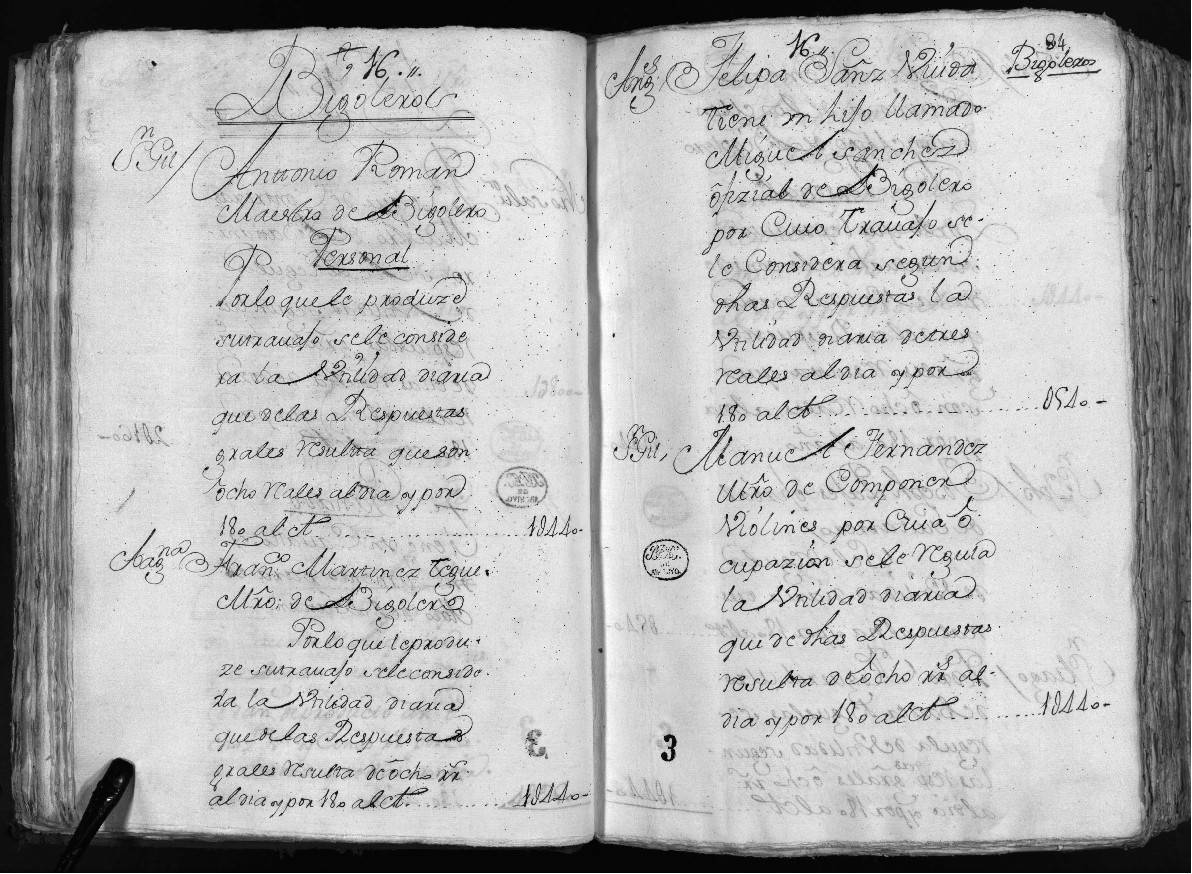 16..
Bigoleros
Sn Gil / Anttonio Roman
Maestro de Bigolero
Personal
Por lo que le produze
su travajo se le conside
ra la Utilidad diaria
que de las Respuestas
grales resulta que son
ôcho reales al dia y por
180 al año
1044o-
Franco Martinez Tegue.
Mro: de Bigolero
Por lo que le produ-
ze su travajo se le conside.
ra la Utilidad diaria
que de las Respuestas
grales resulta de ôcho rrs
al dia y por 180 al año.
1044o-
16..
84
Bigoleros
Angs Felipa Sanz Viuda
tiene un hijo llamado
Miguel sanchez
ôfizial de Bigolero
por Cuio Travajo se-
le Considera segun
dhas Respuestas la
Utilidad diaria de tres
reales al dia y por
180 al año
0540-
Sn Gil, Manuel Fernandez
Mro de Componer
Violines por Cuia ô
cupazión se le regula
la Utilidad diaria
que de dhas Respuestas
resulta de ôcho rrs al-
dia y por 180 al año
1044o-
3